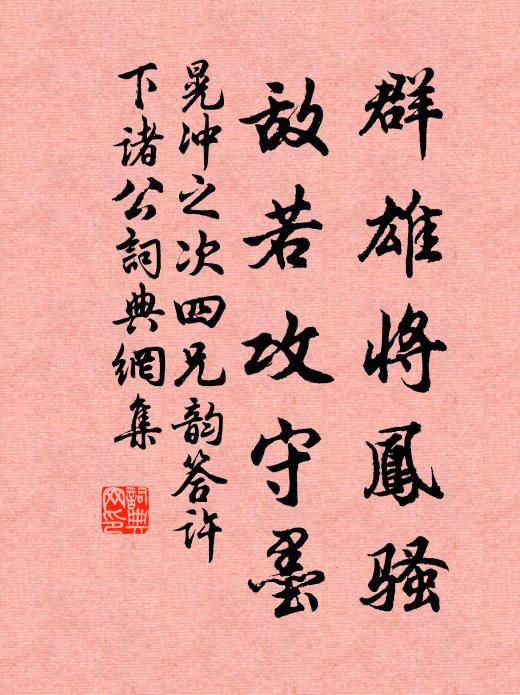 群雄将鳳骚
敌若攻守墨
晁冲之次四兄韵答许
下诸公詞典網集
詞典
网印